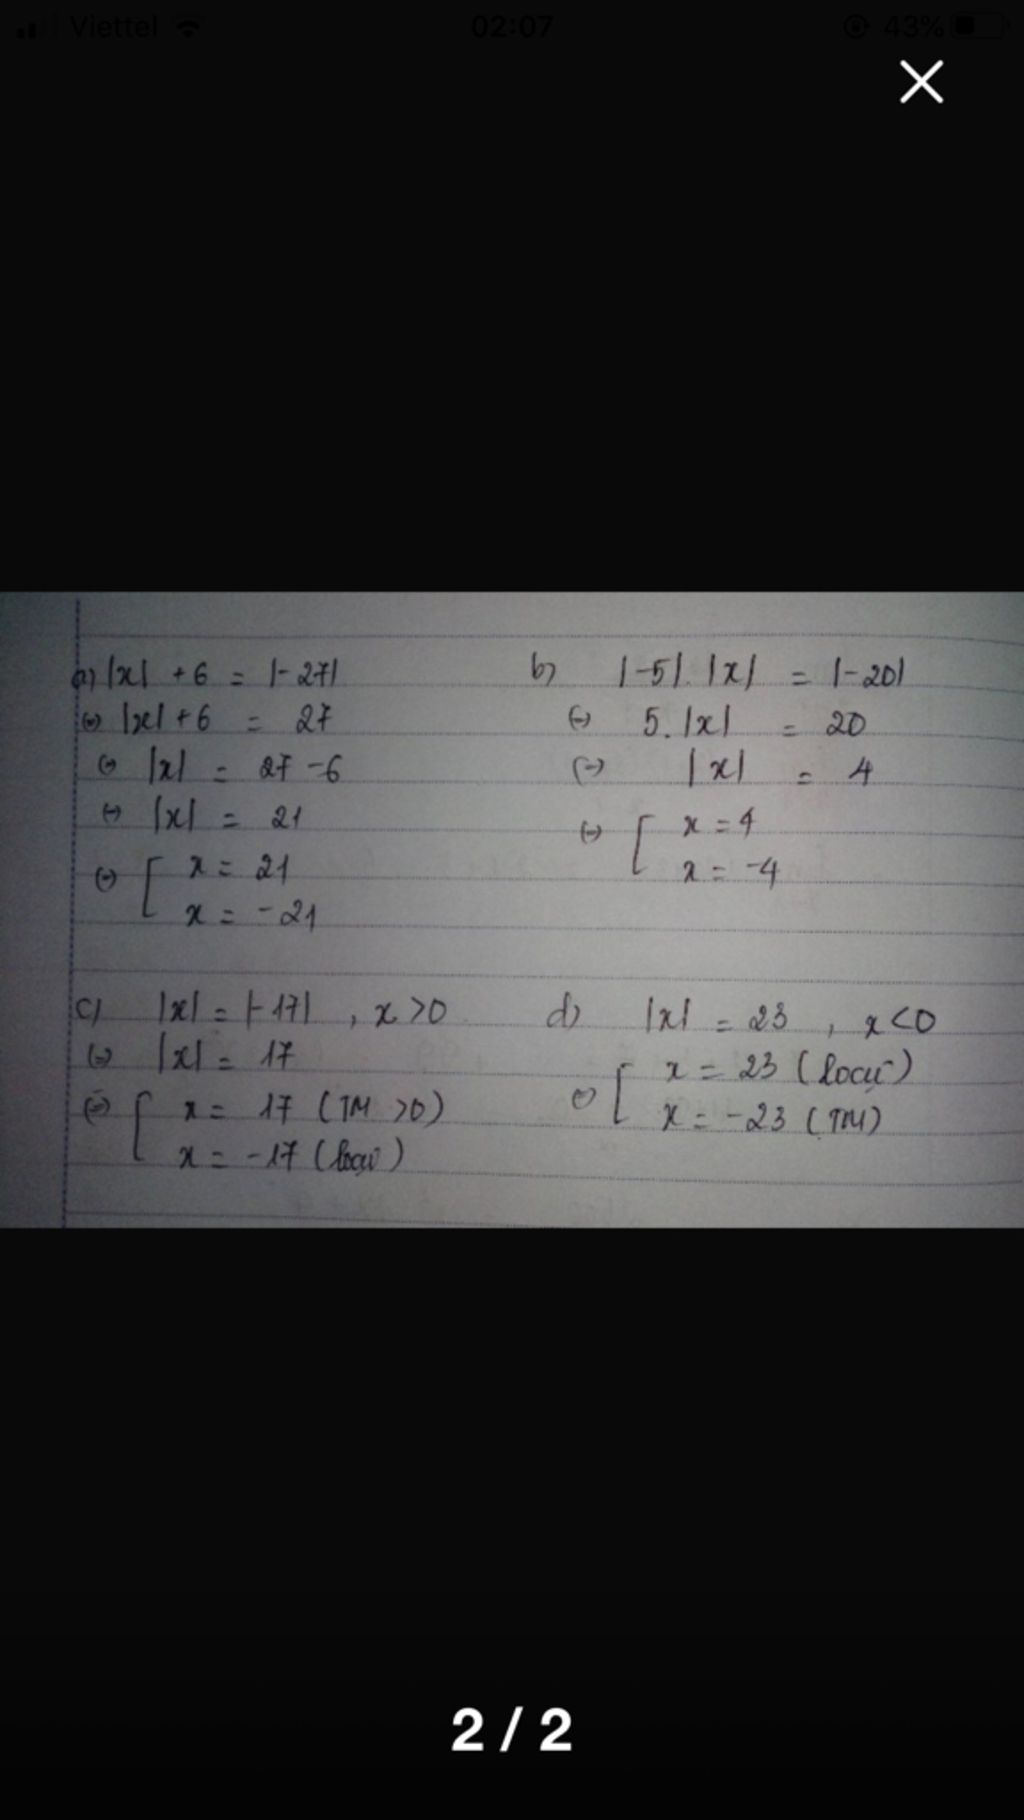 Viettel 02:07 43%
a) |x| + 6 = |-27|
(=) |x| + 6 = 27
(=) |x| = 27 - 6
(=) |x| = 21
(=) [ x = 21
x = -21
b) |-5|. |x| = |-20|
(=) 5. |x| = 20
(=) |x| = 4
(=) [ x = 4
x = -4
c) |x| = |-17| , x > 0
(=) |x| = 17
(=) [ x = 17 (TM >0)
x = -17 (loại)
d) |x| = 23 , x < 0
(=) [ x = 23 (loại)
x = -23 (TM)
2 / 2